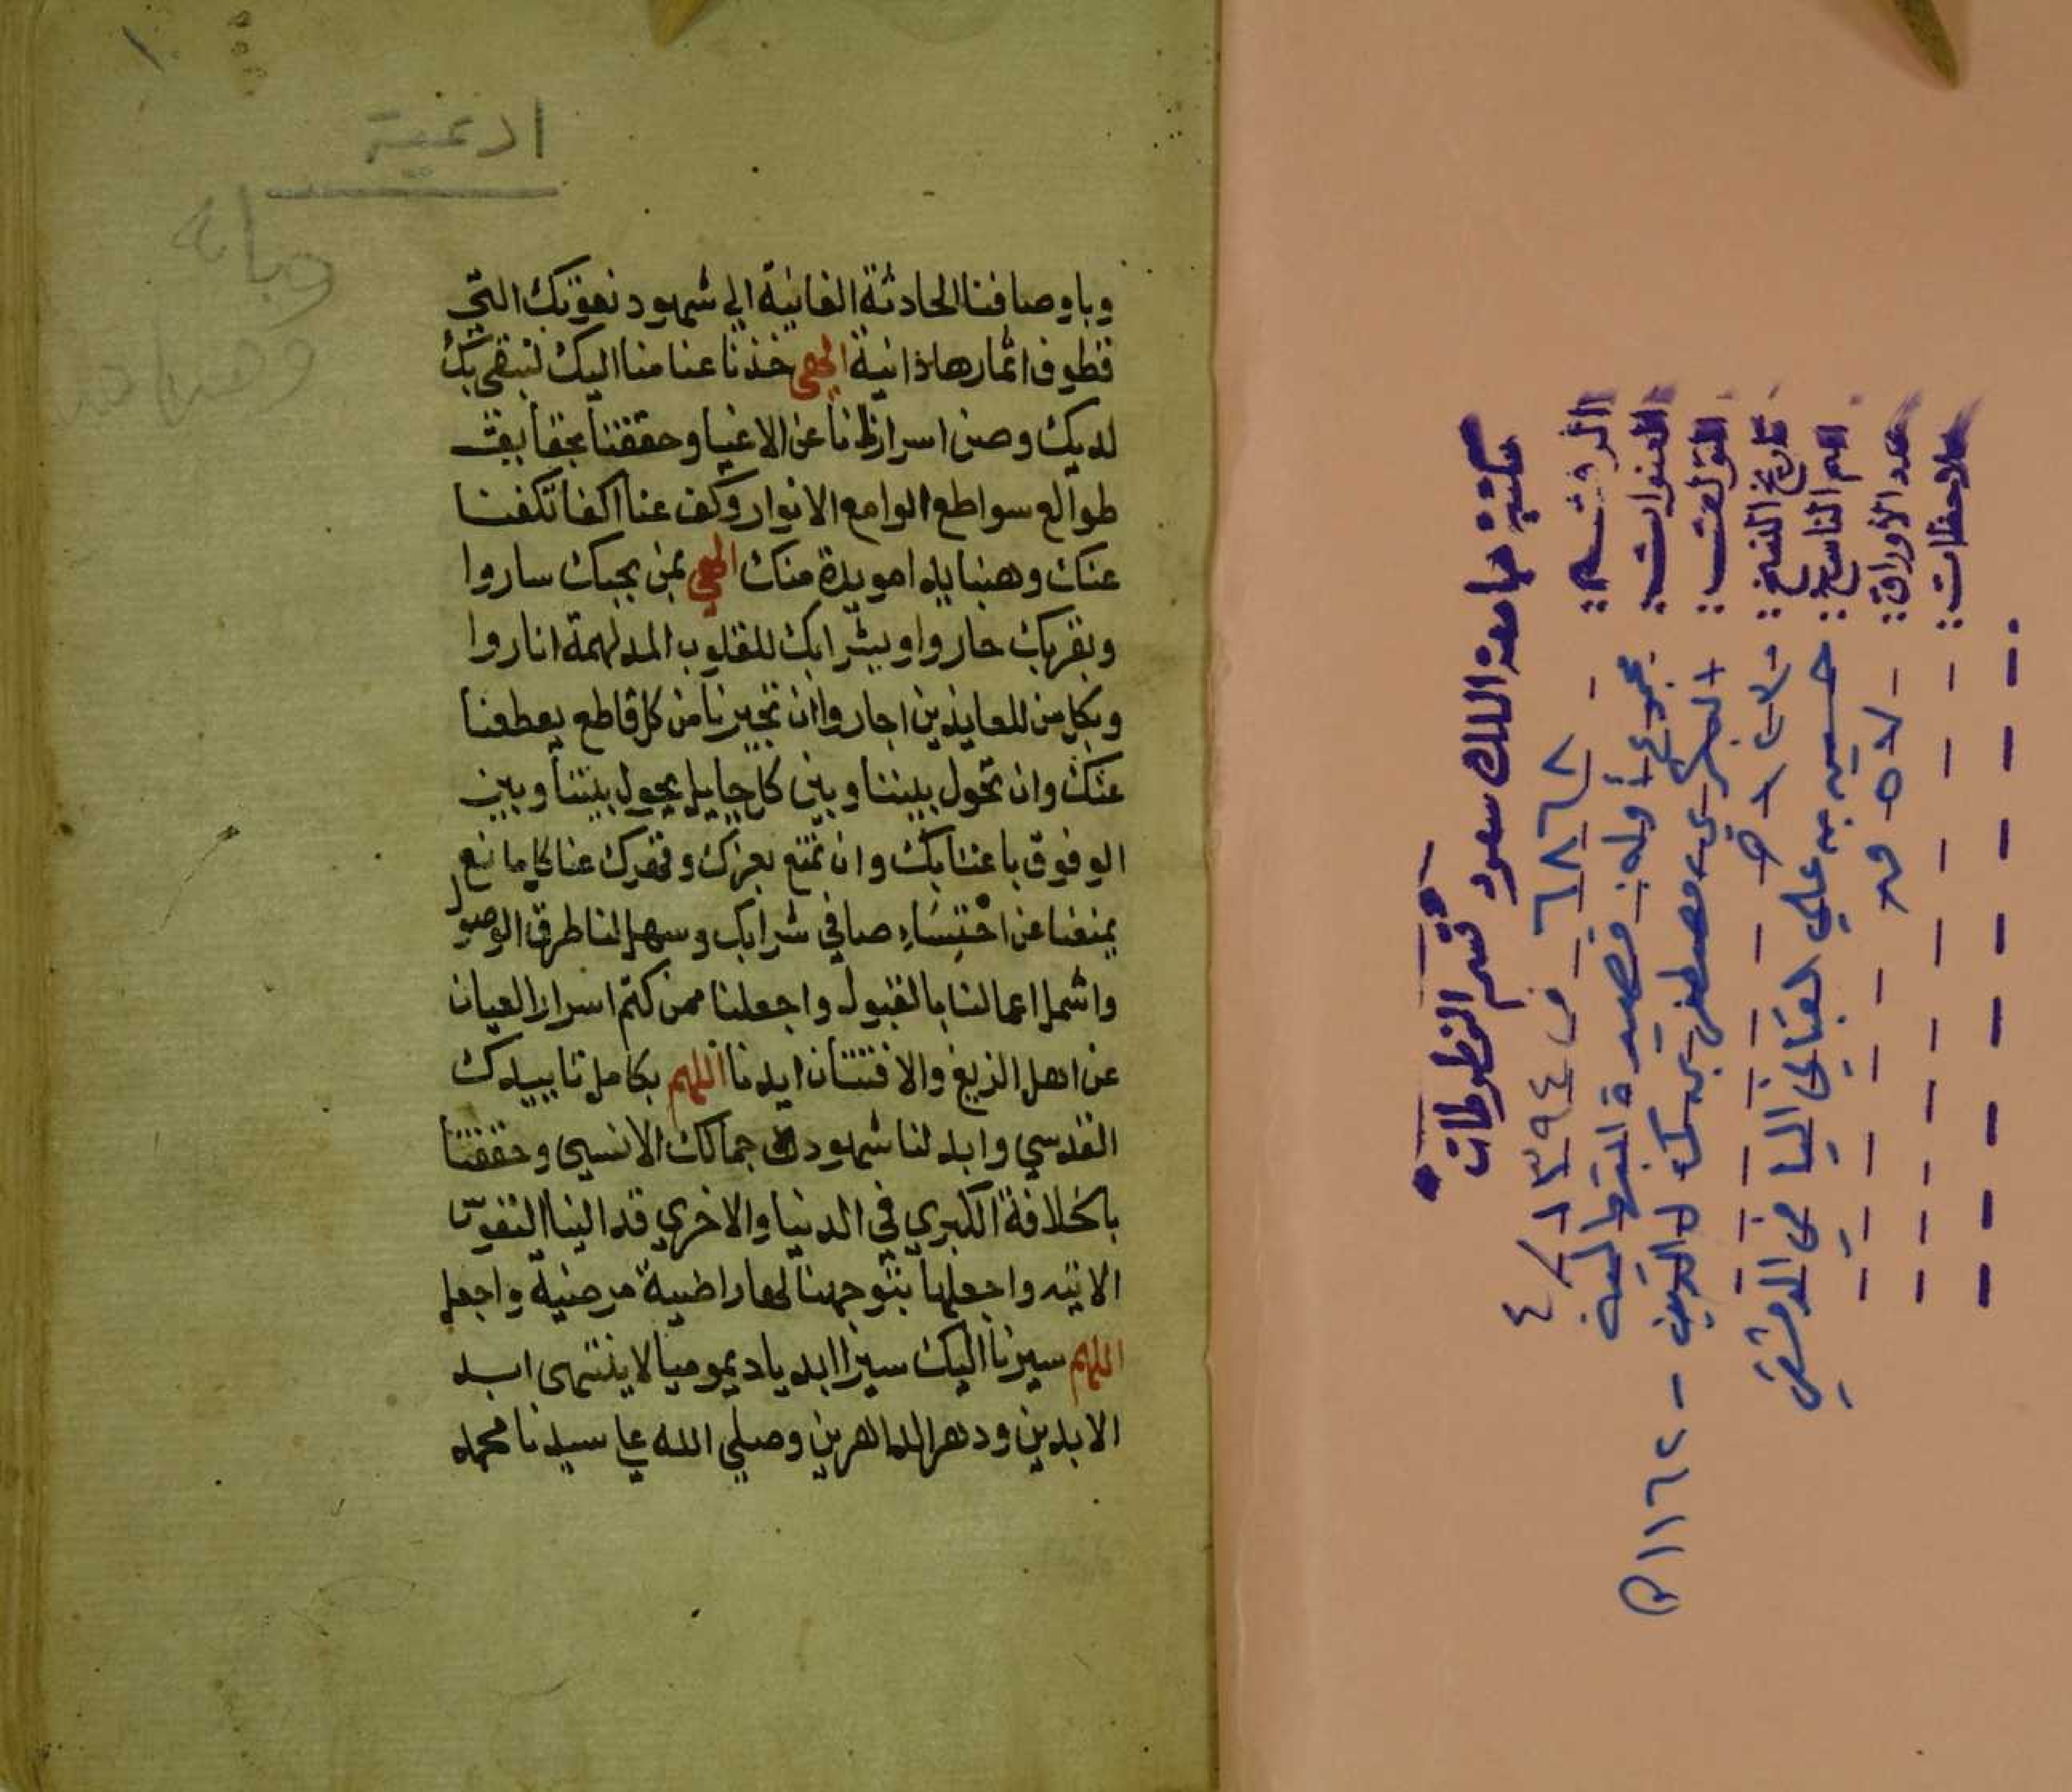 ادعية
وباوصافنا الحادثة الفانية الي شهود نعوتك التي
قطوف اثمارها دانية الهي خذنا عنا منا اليك لنبقي بك
لديك وصن اسرارنا عن الاغيا وحققنا بحقايق
طوالع سواطع لوامع الانوار وكف عنا اكفا تكفنا
عنك وهبنا يدا مويدة منك الهي بمن بحبك ساروا
وبقربك حاروا وبشرابك للقلوب المدلهمة اناروا
وبكامن للعايذين اجاروا ان تجيرنا من كل قاطع يعطفنا
عنك وان تحول بيننا وبين كل حايل يحول بيننا وبين
الوقوف باعتابك وان تمنع بعزك وقهرك عنا كل مانع
يمنعنا عن احتساء صافي شرابك وسهل لنا طرق الوصول
واشمل اعمالنا بالقبول واجعلنا ممن كتم اسرار العيان
عن اهل الزيغ والافتتان ايدنا اللهم بكامل تاييدك
القدسي وابد لنا شهود جمالك الانسي وحققنا
بالخلافة الكبري في الدنيا والاخري قد الينا النفوس
الابيه واجعلها بتوجهنا لها راضية مرضية واجعل
اللهم سيرنا اليك سيرا ابديا ديموميا لا ينتهى ابد
الابدين ودهر الداهرين وصلي الله علي سيدنا محمد
مكتبة جامعة الملك سعود قسم المخطوطات
الرقم: ٦٨٦٧ ف ١٣٩٤ / ٤
العنوان: مجموع أوله: قصيدة ابتهالية
المؤلف: البكري، مصطفى بن كمال الدين - ١١٦٢ هـ
تاريخ النسخ:
اسم الناسخ: حسين بن علي القباني اليافي الدمشقي
عدد الأوراق: ٥٧ ق
ملاحظات: